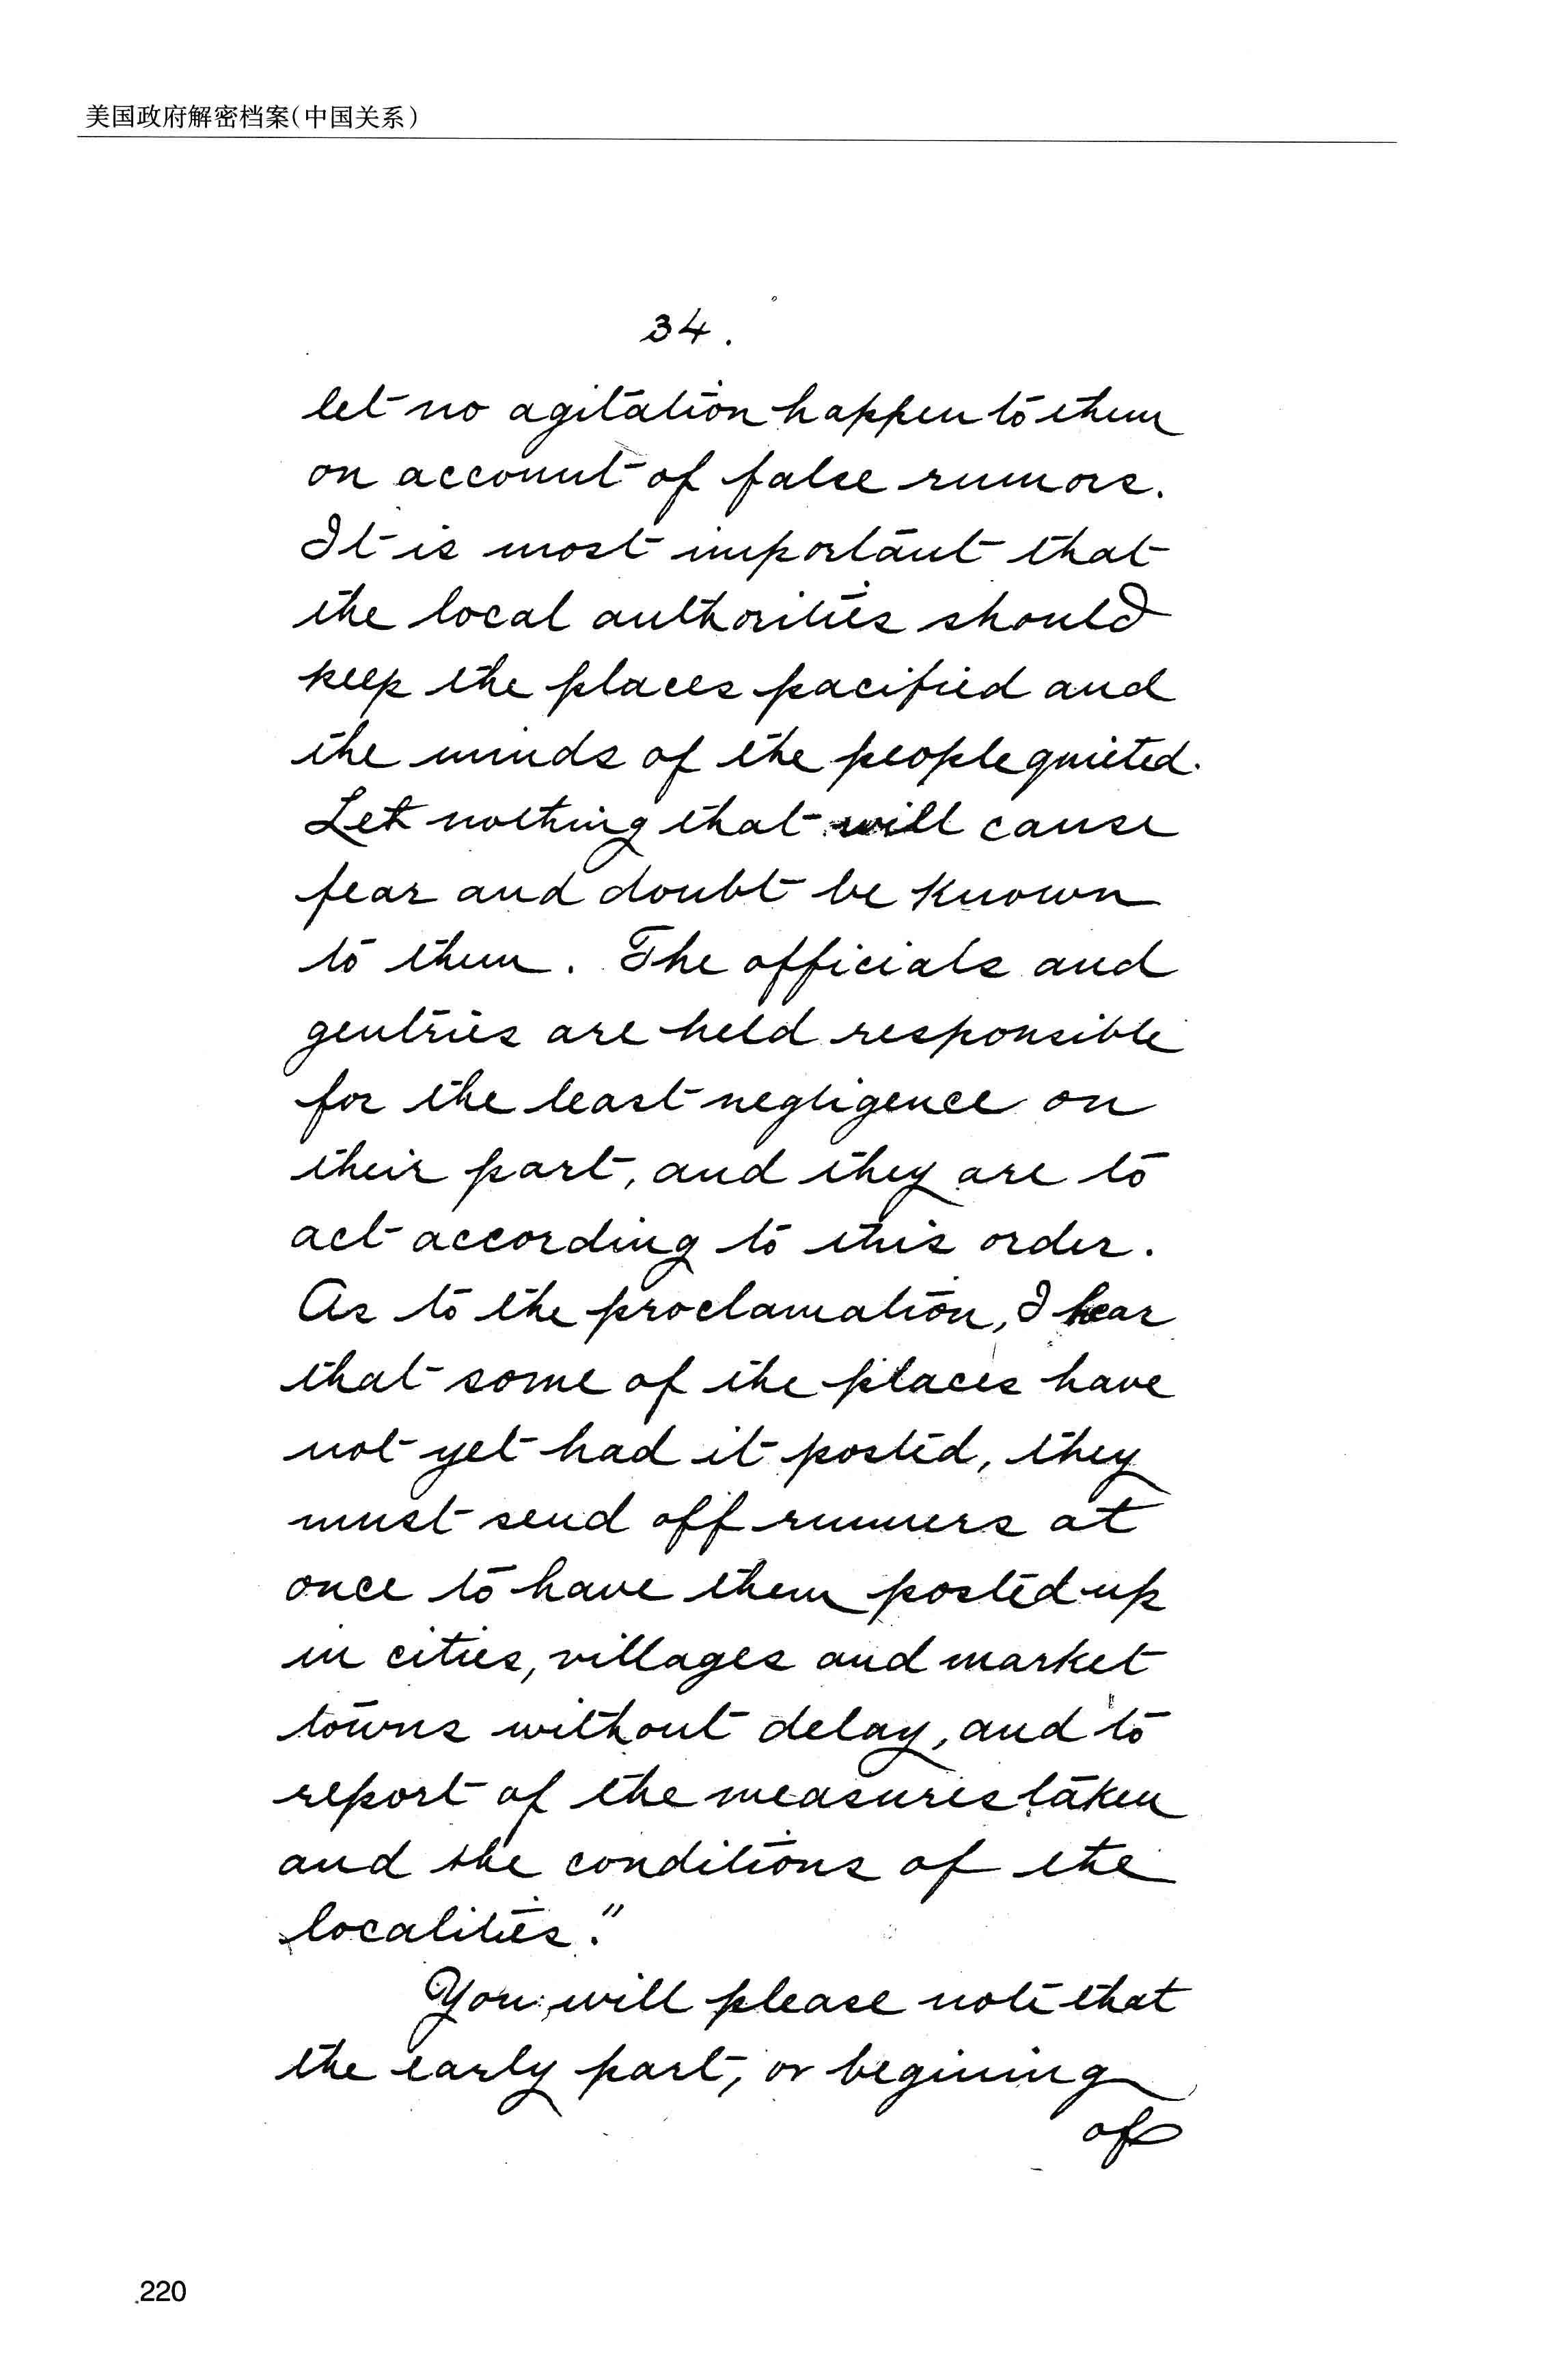 美国政府解密档案(中国关系)
34.
let no agitation happen to them
on account of false rumors.
It is most important that
the local authorities should
keep the places pacified and
the minds of the people quieted.
Let nothing that will cause
fear and doubt be known
to them. The officials and
gentries are held responsible
for the least negligence on
their part, and they are to
act according to this order.
As to the proclamation, I hear
that some of the places have
not yet had it posted, they
must send off runners at
once to have them posted up
in cities, villages and market
towns without delay, and to
report of the measures taken
and the conditions of the
localities."
You will please note that
the early part, or begining
of
220